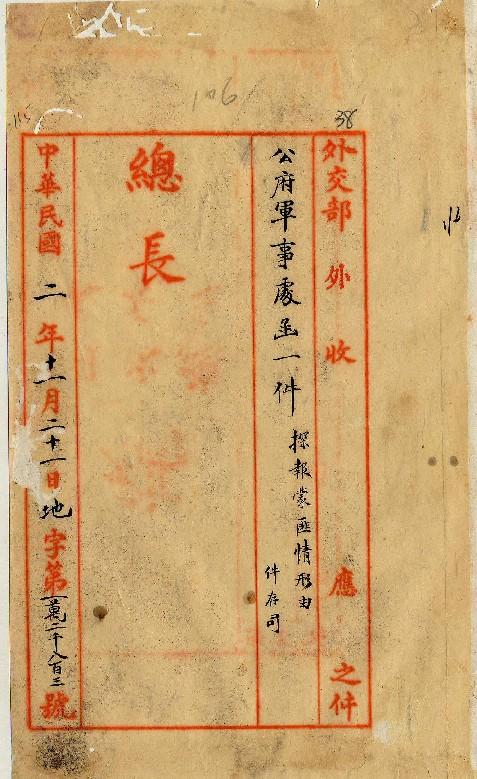 106
38
115
外交部外收應之件
公府軍事處函一件
探報蒙匪情形由
件存司
總長
中華民國二年十一月二十一日地字第一萬二千八百三號